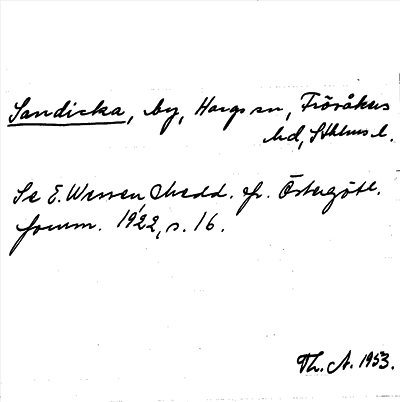 Sandicka, by, Hargs sn, Fröråkers
hd, Sthlms l.
Se E. Wessén Medd. fr. Östergötl.
fornm. 1922, s. 16.
Th. A. 1953.